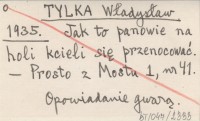 TYLKA Władysław
1935. Jak to panowie na
holi kcieli się przenocować.
— Prosto z Mostu 1, nr 41.
Opowiadanie gwarą.